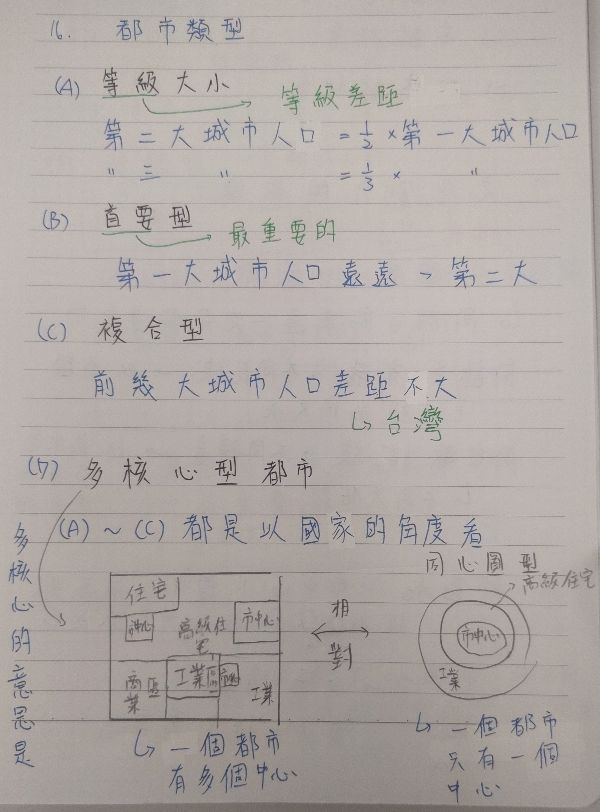 16. 都市類型
(A) 等級大小 → 等級差距
第二大城市人口 = 1/2 × 第一大城市人口
" 三 " = 1/3 × "
(B) 首要型 → 最重要的
第一大城市人口遠遠 > 第二大
(C) 複合型
前幾大城市人口差距不大
↳ 台灣
(D) 多核心型都市
(A) ~ (C) 都是以國家的角度看
多核心的意思是
住宅
市中心
高級住宅
市中心
商業區
工業區
工業
↳ 一個都市
有多個中心
相對
同心圓型
高級住宅
市中心
工業
↳ 一個都市
只有一個
中心